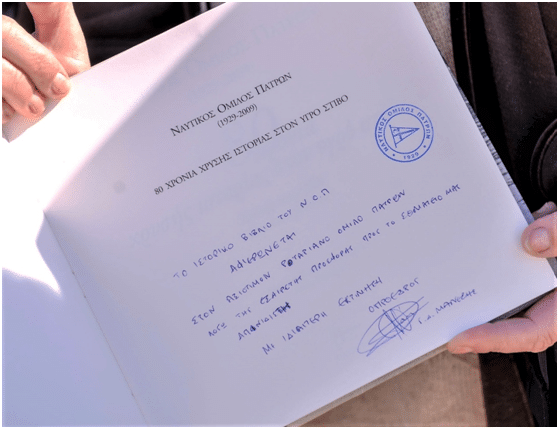 ΝΑΥΤΙΚΟΣ ΟΜΙΛΟΣ ΠΑΤΡΩΝ
(1929-2009)
80 ΧΡΟΝΙΑ ΧΡΥΣΗΣ ΙΣΤΟΡΙΑΣ ΣΤΟΝ ΥΓΡΟ ΣΤΙΒΟ
ΝΑΥΤΙΚΟΣ ΟΜΙΛΟΣ ΠΑΤΡΩΝ
1929
ΤΟ ΙΣΤΟΡΙΚΟ ΒΙΒΛΙΟ ΤΟΥ Ν.Ο.Π
ΑΦΙΕΡΩΝΕΤΑΙ
ΣΤΟΝ ΑΞΙΟΤΙΜΟΝ ΡΟΤΑΡΙΑΝΟ ΟΜΙΛΟ ΠΑΤΡΩΝ
ΛΟΓΩ ΤΗΣ ΕΞΑΙΡΕΤΗΣ ΠΡΟΣΦΟΡΑΣ ΠΡΟΣ ΤΟ ΣΩΜΑΤΕΙΟ ΜΑΣ
ΜΕ ΙΔΙΑΙΤΕΡΗ ΕΚΤΙΜΗΣΗ
Ο ΠΡΟΕΔΡΟΣ